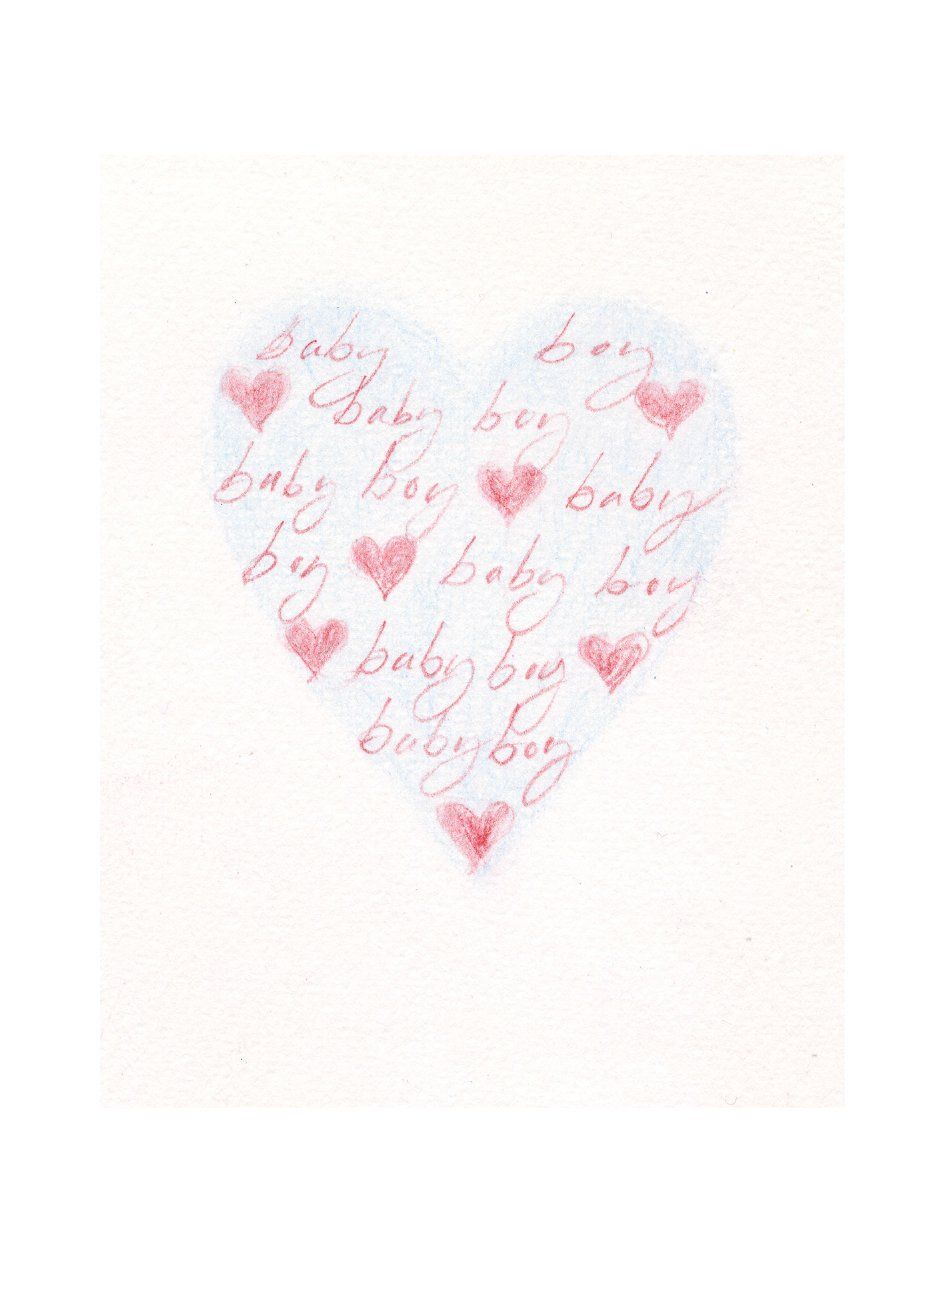 baby boy
baby boy
baby boy baby
boy baby boy
baby boy
baby boy